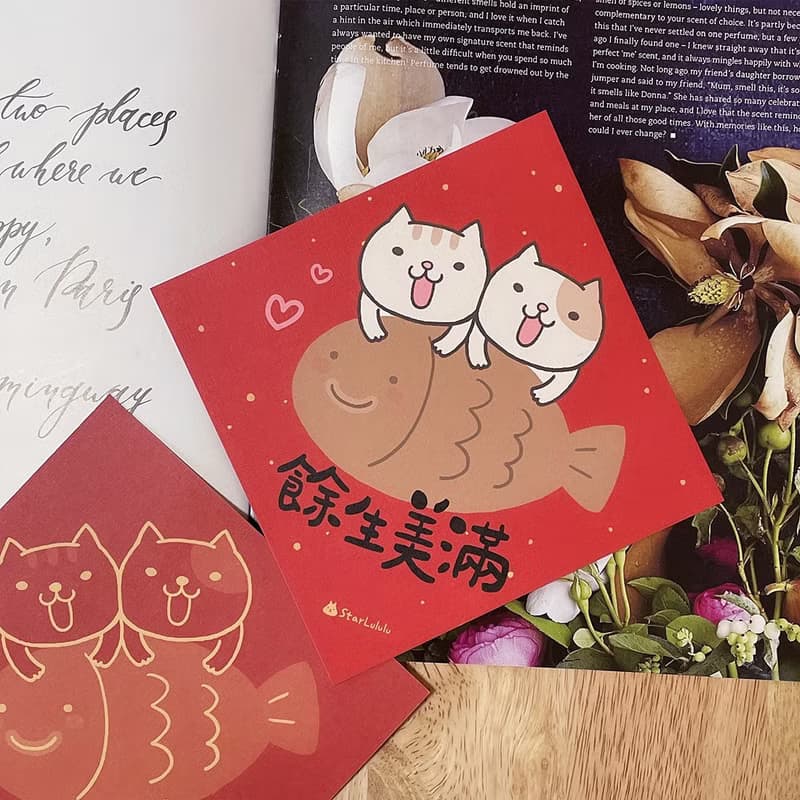 two places
where we
ppy,
n Paris
mingway
different smells hold an imprint of
a particular time, place or person, and I love it when I catch
a hint in the air which immediately transports me back. I've
always wanted to have my own signature scent that reminds
people of me, but it's a little difficult when you spend so much
time in the kitchen! Perfume tends to get drowned out by the
smell of spices or lemons – lovely things, but not neces
complementary to your scent of choice. It's partly beca
this that I've never settled on one perfume, but a few
ago I finally found one – I knew straight away that it's
perfect 'me' scent, and it always mingles happily with w
I'm cooking. Not long ago my friend's daughter borrow
jumper and said to my friend, "Mum, smell this, it's so
it smells like Donna." She has shared so many celebrat
and meals at my place, and I love that the scent remind
her of all those good times. With memories like this, ho
could I ever change? ■
餘生美滿
StarLululu